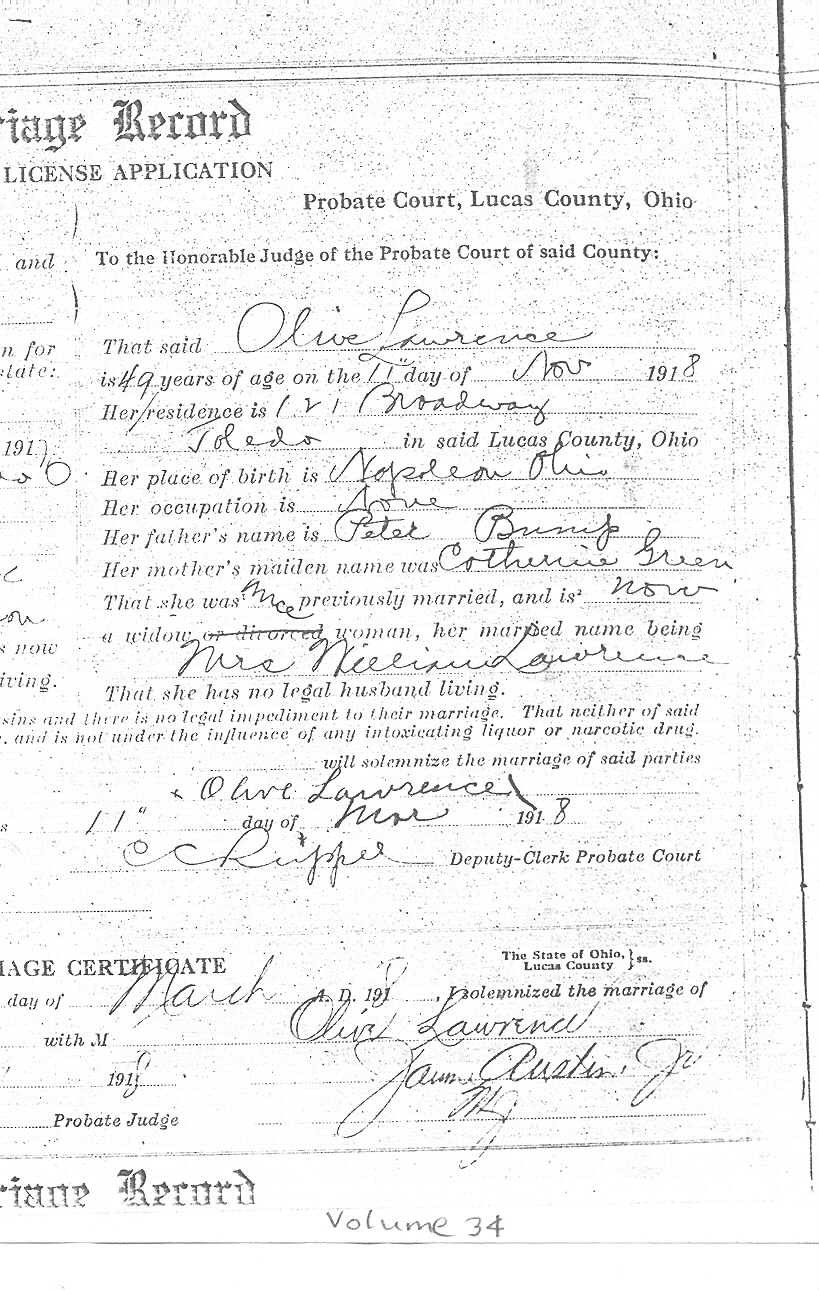 riage Record
LICENSE APPLICATION
Probate Court, Lucas County, Ohio
and
To the Honorable Judge of the Probate Court of said County:
n for
That said Olive Lawrence
slate:
is 49 years of age on the 11" day of Nov 1918
Her residence is 121 Broadway
191
Toledo in said Lucas County, Ohio
Her place of birth is Napoleon Ohio
Her occupation is None
Her father's name is Peter Bump
Her mother's maiden name was Catherine Green
That she was previously married, and is now
on
a widow or divorced woman, her married name being
s now
Mrs William Lawrence
iving.
That she has no legal husband living.
sins and there is no legal impediment to their marriage. That neither of said
, and is not under the influence of any intoxicating liquor or narcotic drug.
will solemnize the marriage of said parties
x Olive Lawrence
s 11" day of Mar 1918
C C Deputy-Clerk Probate Court
IAGE CERTIFICATE
The State of Ohio, } ss.
Lucas County
day of March A. D. 1918, I solemnized the marriage of
with M Olive Lawrence
1918 Austin, Jr
Probate Judge
riage Record
Volume 34